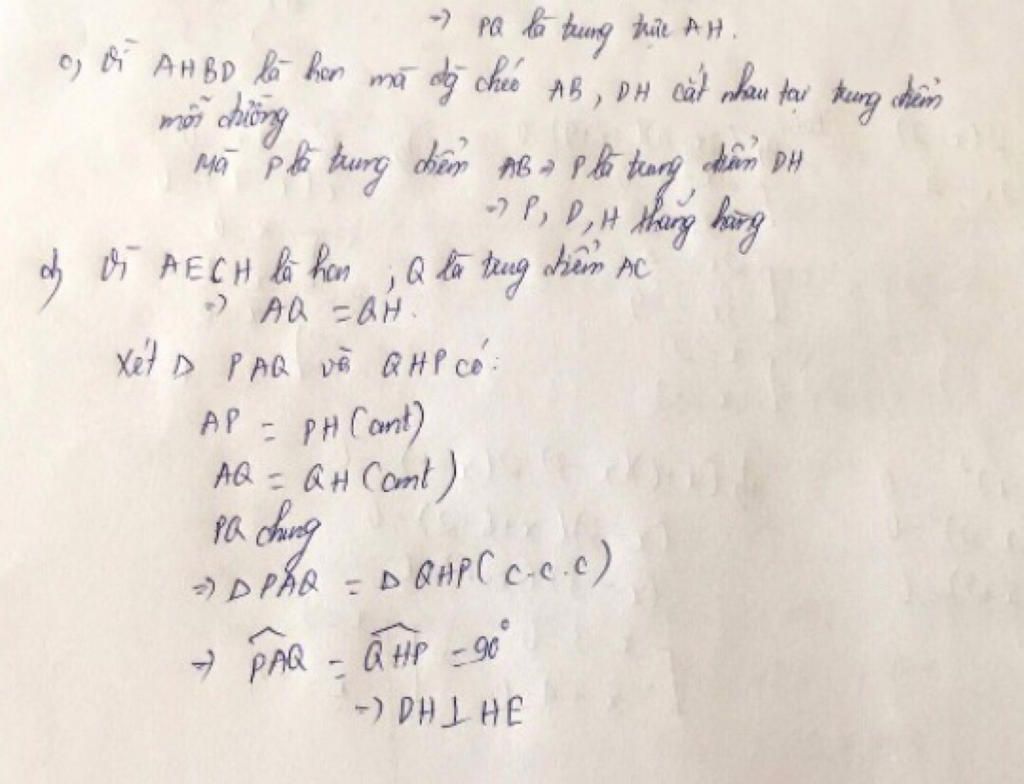 => PQ là trung trực AH.
c) Vì AHBD là hcn mà đg chéo AB, DH cắt nhau tại trung điểm
mỗi đường
Mà P là trung điểm AB => P là trung điểm DH
=> P, D, H thẳng hàng
d) Vì AECH là hcn , Q là trung điểm AC
=> AQ = QH.
Xét Δ PAQ và QHP có:
AP = PH (cmt)
AQ = QH (cmt)
PQ chung
=> Δ PAQ = Δ QHP (c.c.c)
=> PAQ = QHP = 90°
=> DH ⊥ HE